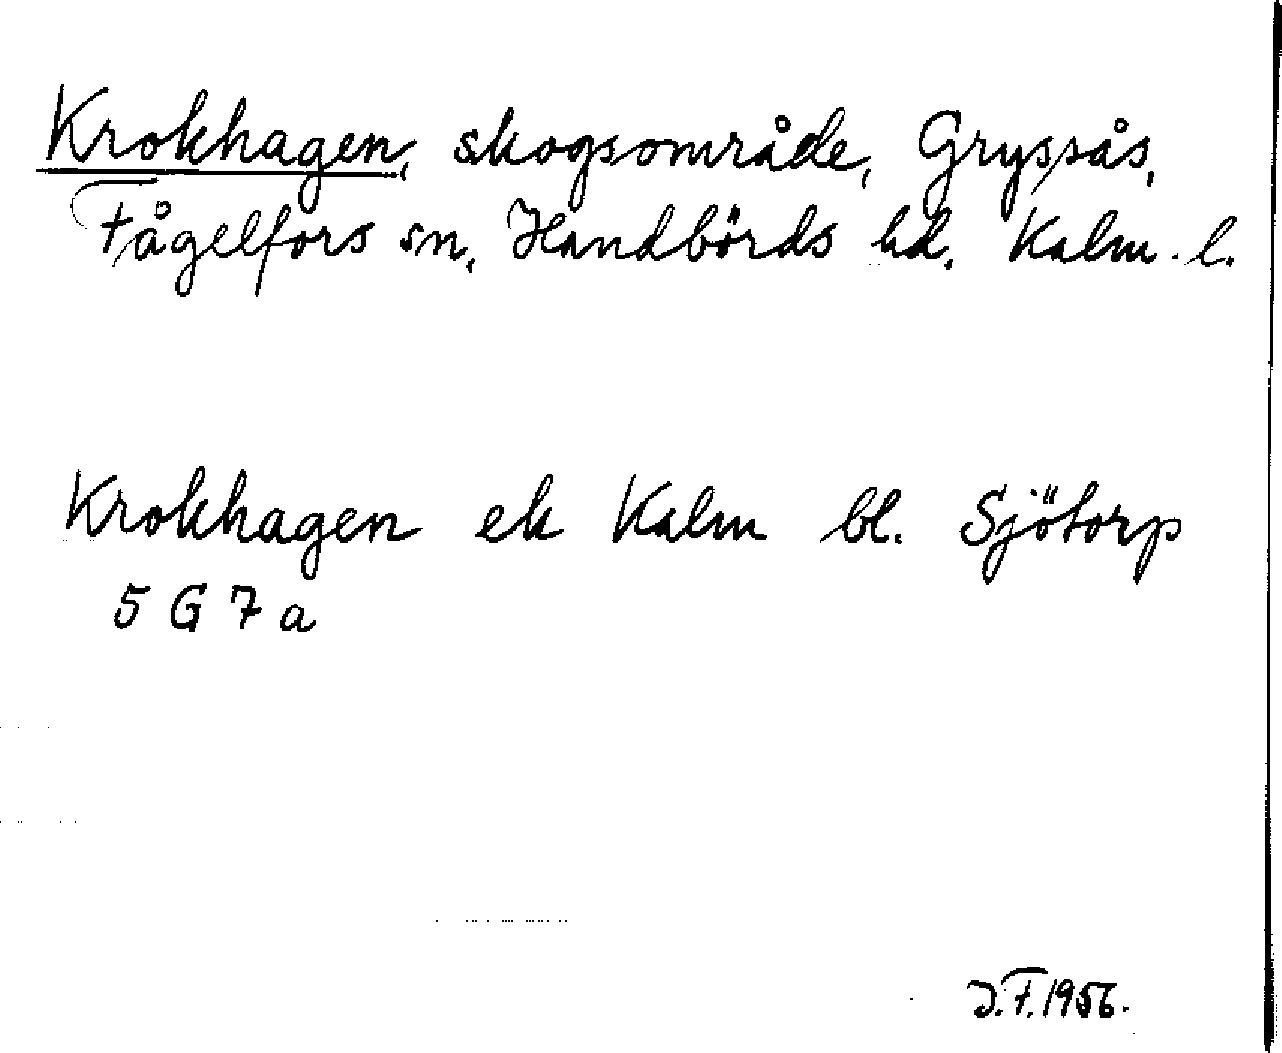 Krokhagen, skogsområde, Gryssås,
Fågelfors sn, Handbörds hd, Kalm. l.
Krokhagen ek Kalm bl. Sjötorp
5 G 7 a
J.F. 1956.